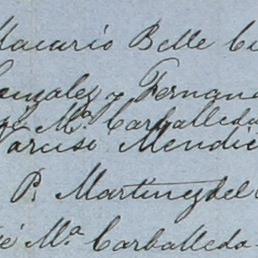 Macario Belle
Gonzalez y Fernan
Mª Carballeda
Narciso Mendi
P. Martinez del
é Mª Carballeda